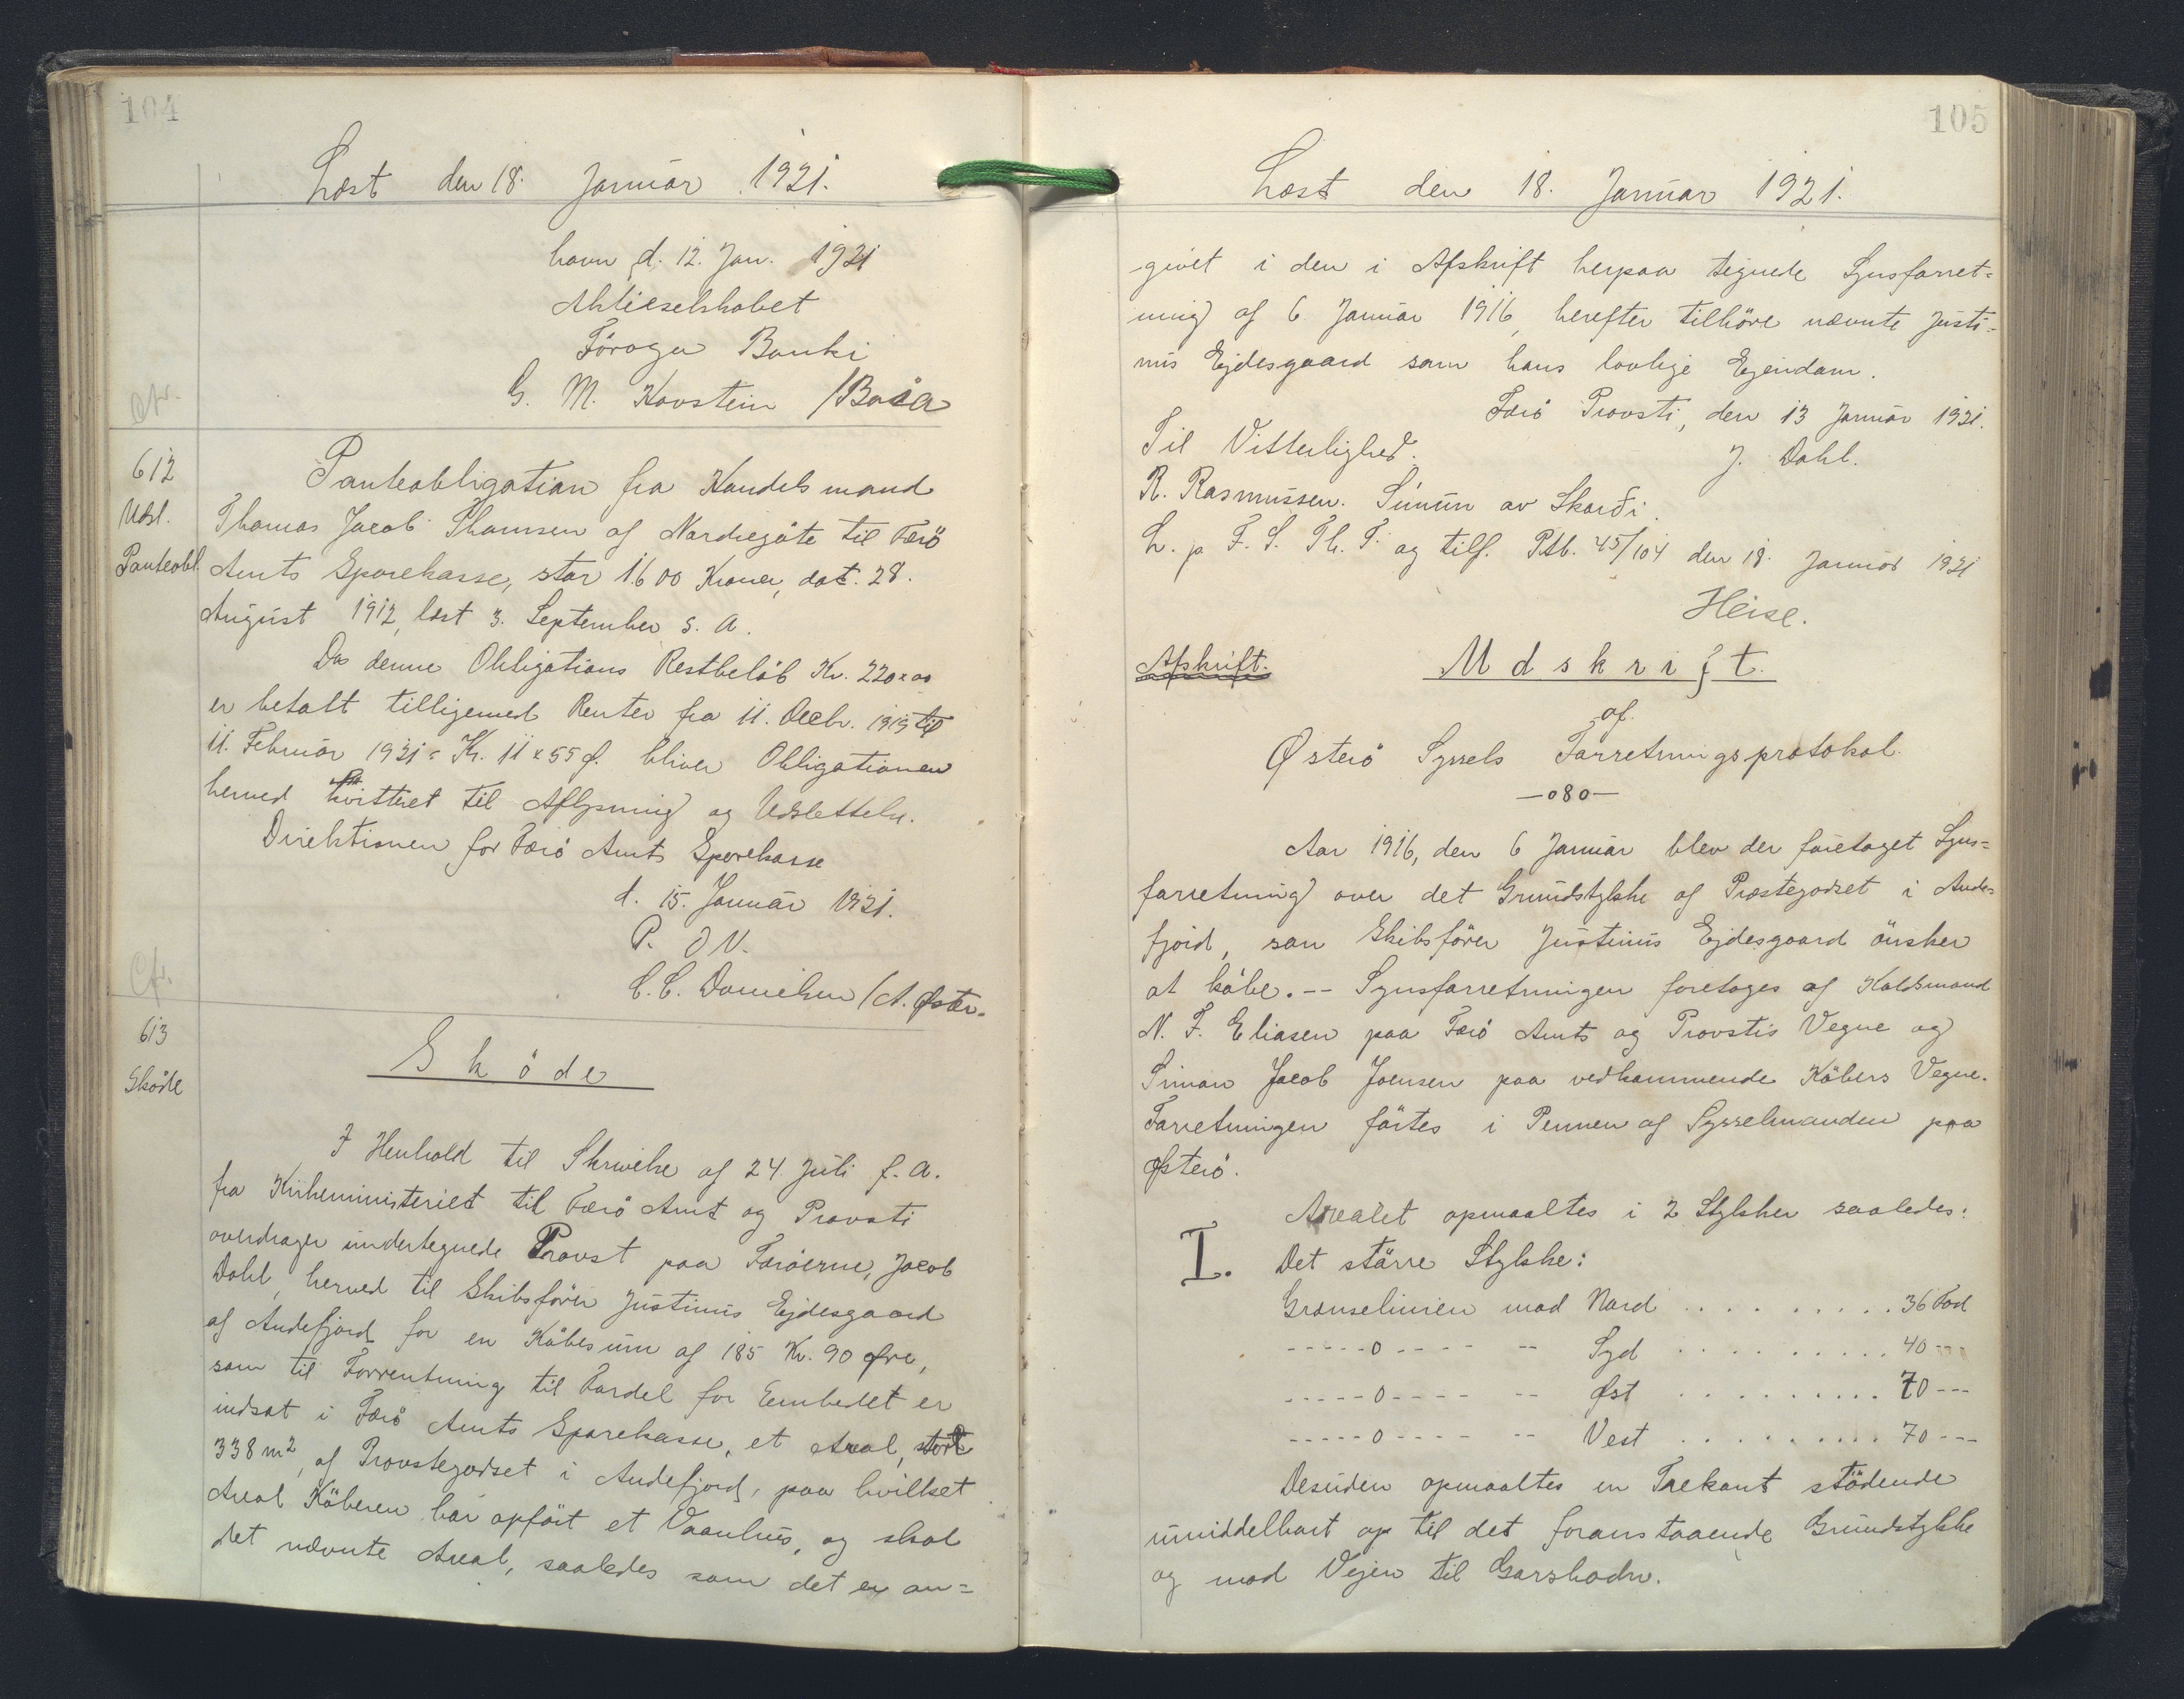 104
Læst den 18. Januar 1921.
havn, d. 12. Jan. 1921
Aktieselskabet
Föroya Banki
G. M. Kovstein /
Cfr.
612
Udsl.
Panteobl.
Panteobligation fra Handelsmand
Thomas Jacob Thomsen af Nordregöte til Færö
Amts Sparekasse, stor 1600 Kroner, dat. 28.
August 1912, læst 3. September s. A.
Da denne Obligations Restbelöb Kr. 220 x 00
er betalt tilligemed Renter fra 11. Decbr. 1919 til
11. Februar 1921 = Kr. 11 x 55 Ø. bliver Obligationen
herved kvitteret til Aflysning og Udslettelse.
Direktionen for Færö Amts Sparekasse
d. 15. Januar 1921.
P. D. V.
C. C. Danielsen / A. Øster.
Cfr.
613
Sköde
Sköde
I Henhold til Skrivelse af 24. Juli f. A.
fra Kirkeministeriet til Færö Amt og Provsti
overdrager undertegnede Provst paa Færöerne, Jacob
Dahl, herved til Skibsförer Justinus Ejdesgaard
af Andefjord for en Köbesum af 185 Kr. 90 Øre,
som til Forrentning til Fordel for Eembedet er
indsat i Færö Amts Sparekasse, et Areal, stort
338 m2, af Provstegodset i Andefjord, paa hvilket
Areal Köberen har opfört et Vaanhus, og skal
det nævnte Areal, saaledes som det er an=
105
Læst den 18. Januar 1921.
givet i den i Afskrift herpaa tegnede Synsforret=
ning af 6 Januar 1916, herefter tilhöre nævnte Justi=
nus Ejdesgaard som hans lovlige Ejendom.
Færö Provsti, den 13 Januar 1921.
Til Vitterlighed. J. Dahl.
R. Rasmussen. Símun av Skarði.
L. p F. S. Th. T. og tilf. Ptb. 45/104 den 18. Januar 1921
Heise.
Afskrift.
Udskrift.
af
Østerö Syssels Forretningsprotokol.
—080—
Aar 1916, den 6 Januar blev der foretaget Syns=
forretning over det Grundstykke af Præstegodset i Ande=
fjord, som Skibsförer Justinus Ejdesgaard önsker
at köbe. -- Synsforretningen foretages af Koldsmand
N. F. Eliasen paa Færö Amts og Provstis Vegne og
Simon Jacob Joensen paa vedkommende Köbers Vegne.
Forretningen förtes i Pennen af Sysselmanden paa
Østerö.
Arealet opmaaltes i 2 Stykker saaledes:
I. Det större Stykke:
Grænselinien mod Nord . . . . . . . . . 36 Fod
-----o---- -- Syd . . . . . . . . . 40 ---
-----o---- -- Øst . . . . . . . . . 70 ---
-----o---- -- Vest . . . . . . . . . 70 ---
Desuden opmaaltes en Trekant stödende
umiddelbart op til det foranstaaende Grundstykke
og mod Vejen til Garshodn.